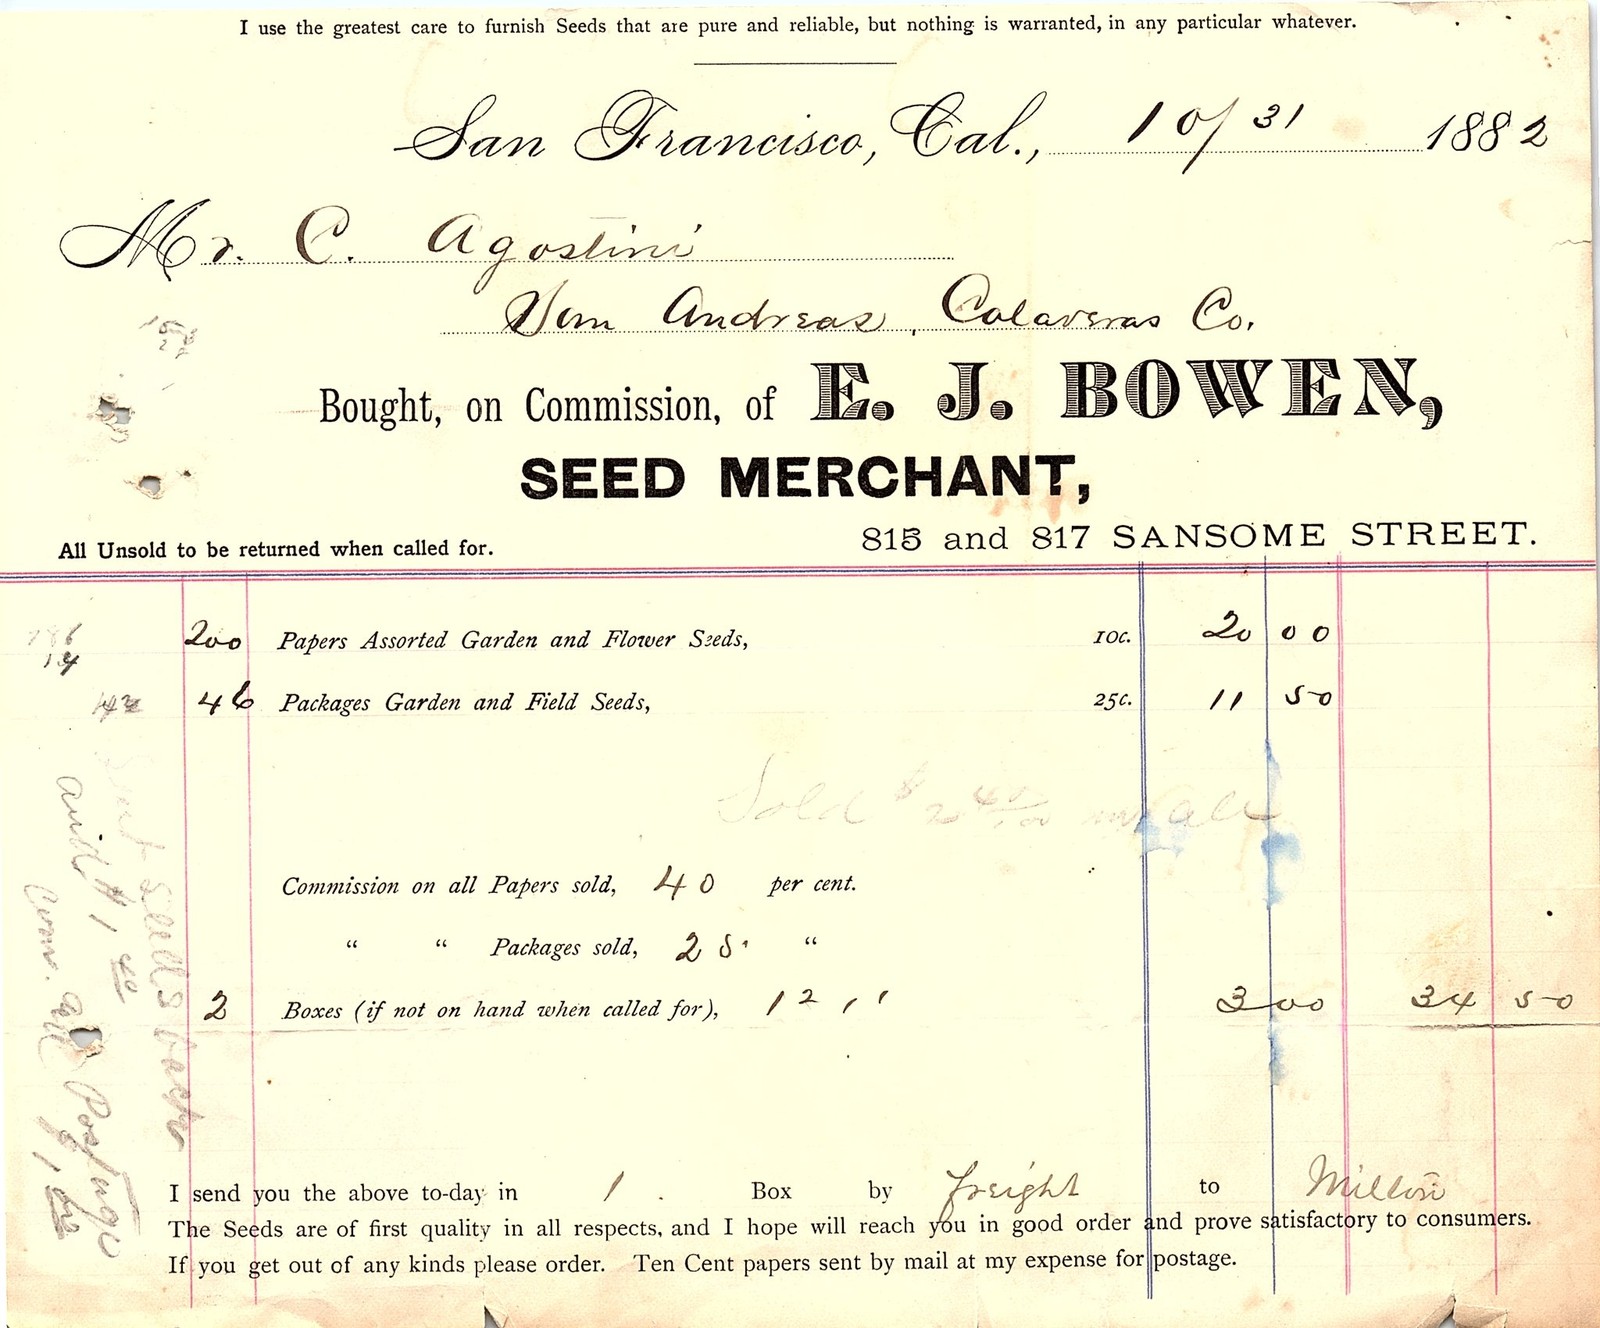 I use the greatest care to furnish Seeds that are pure and reliable, but nothing is warranted, in any particular whatever.
San Francisco, Cal., 10/31 1882
Mr. C. Agostini
San Andreas, Calaveras Co.
Bought, on Commission, of E. J. BOWEN,
SEED MERCHANT,
All Unsold to be returned when called for. 815 and 817 SANSOME STREET.
200 Papers Assorted Garden and Flower Seeds, 10c. 20 00
46 Packages Garden and Field Seeds, 25c. 11 50
Sold $2 40/100 in all
Commission on all Papers sold, 40 per cent.
“ “ Packages sold, 25 “
2 Boxes (if not on hand when called for), 12/ 3 00 34 50
I send you the above to-day in 1 Box by freight to Milton
The Seeds are of first quality in all respects, and I hope will reach you in good order and prove satisfactory to consumers.
If you get out of any kinds please order. Ten Cent papers sent by mail at my expense for postage.
Sent Seeds back
and $1 40 Postage
Com. off